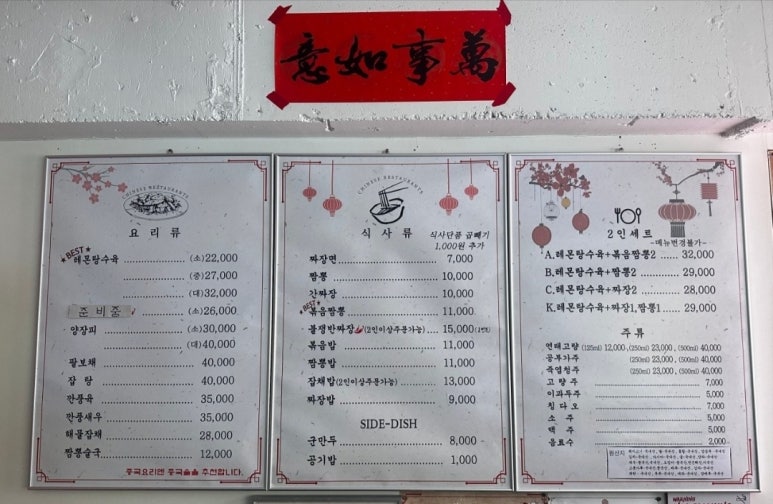 意如事萬
CHINESE RESTAURANTS
요리류
BEST
레몬탕수육 (소)22,000
(중)27,000
(대)32,000
준비중 (소)26,000
양장피 (소)30,000
(대)40,000
팔보채 40,000
잡탕 40,000
깐풍육 35,000
깐풍새우 35,000
해물잡채 28,000
짬뽕술국 12,000
중국요리엔 중국술을 추천합니다.
CHINESE RESTAURANTS
식사류
식사단품 곱빼기
1,000원 추가
짜장면 7,000
짬뽕 10,000
간짜장 10,000
BEST
볶음짬뽕 11,000
불쟁반짜장 (2인이상주문가능) 15,000
볶음밥 11,000
짬뽕밥 11,000
잡채밥(2인이상주문가능) 13,000
짜장밥 9,000
SIDE-DISH
군만두 8,000
공기밥 1,000
2인세트
-메뉴변경불가-
A.레몬탕수육+볶음짬뽕2 32,000
B.레몬탕수육+짬뽕2 29,000
C.레몬탕수육+짜장2 28,000
K.레몬탕수육+짜장1,짬뽕1 29,000
주류
연태고량 (125ml) 12,000,(250ml) 23,000,(500ml) 40,000
공부가주 (250ml) 23,000,(500ml) 40,000
죽엽청주 (250ml) 23,000,(500ml) 40,000
고량주 7,000
이과두주 5,000
칭다오 7,000
소주 5,000
맥주 5,000
음료수 2,000
원산지